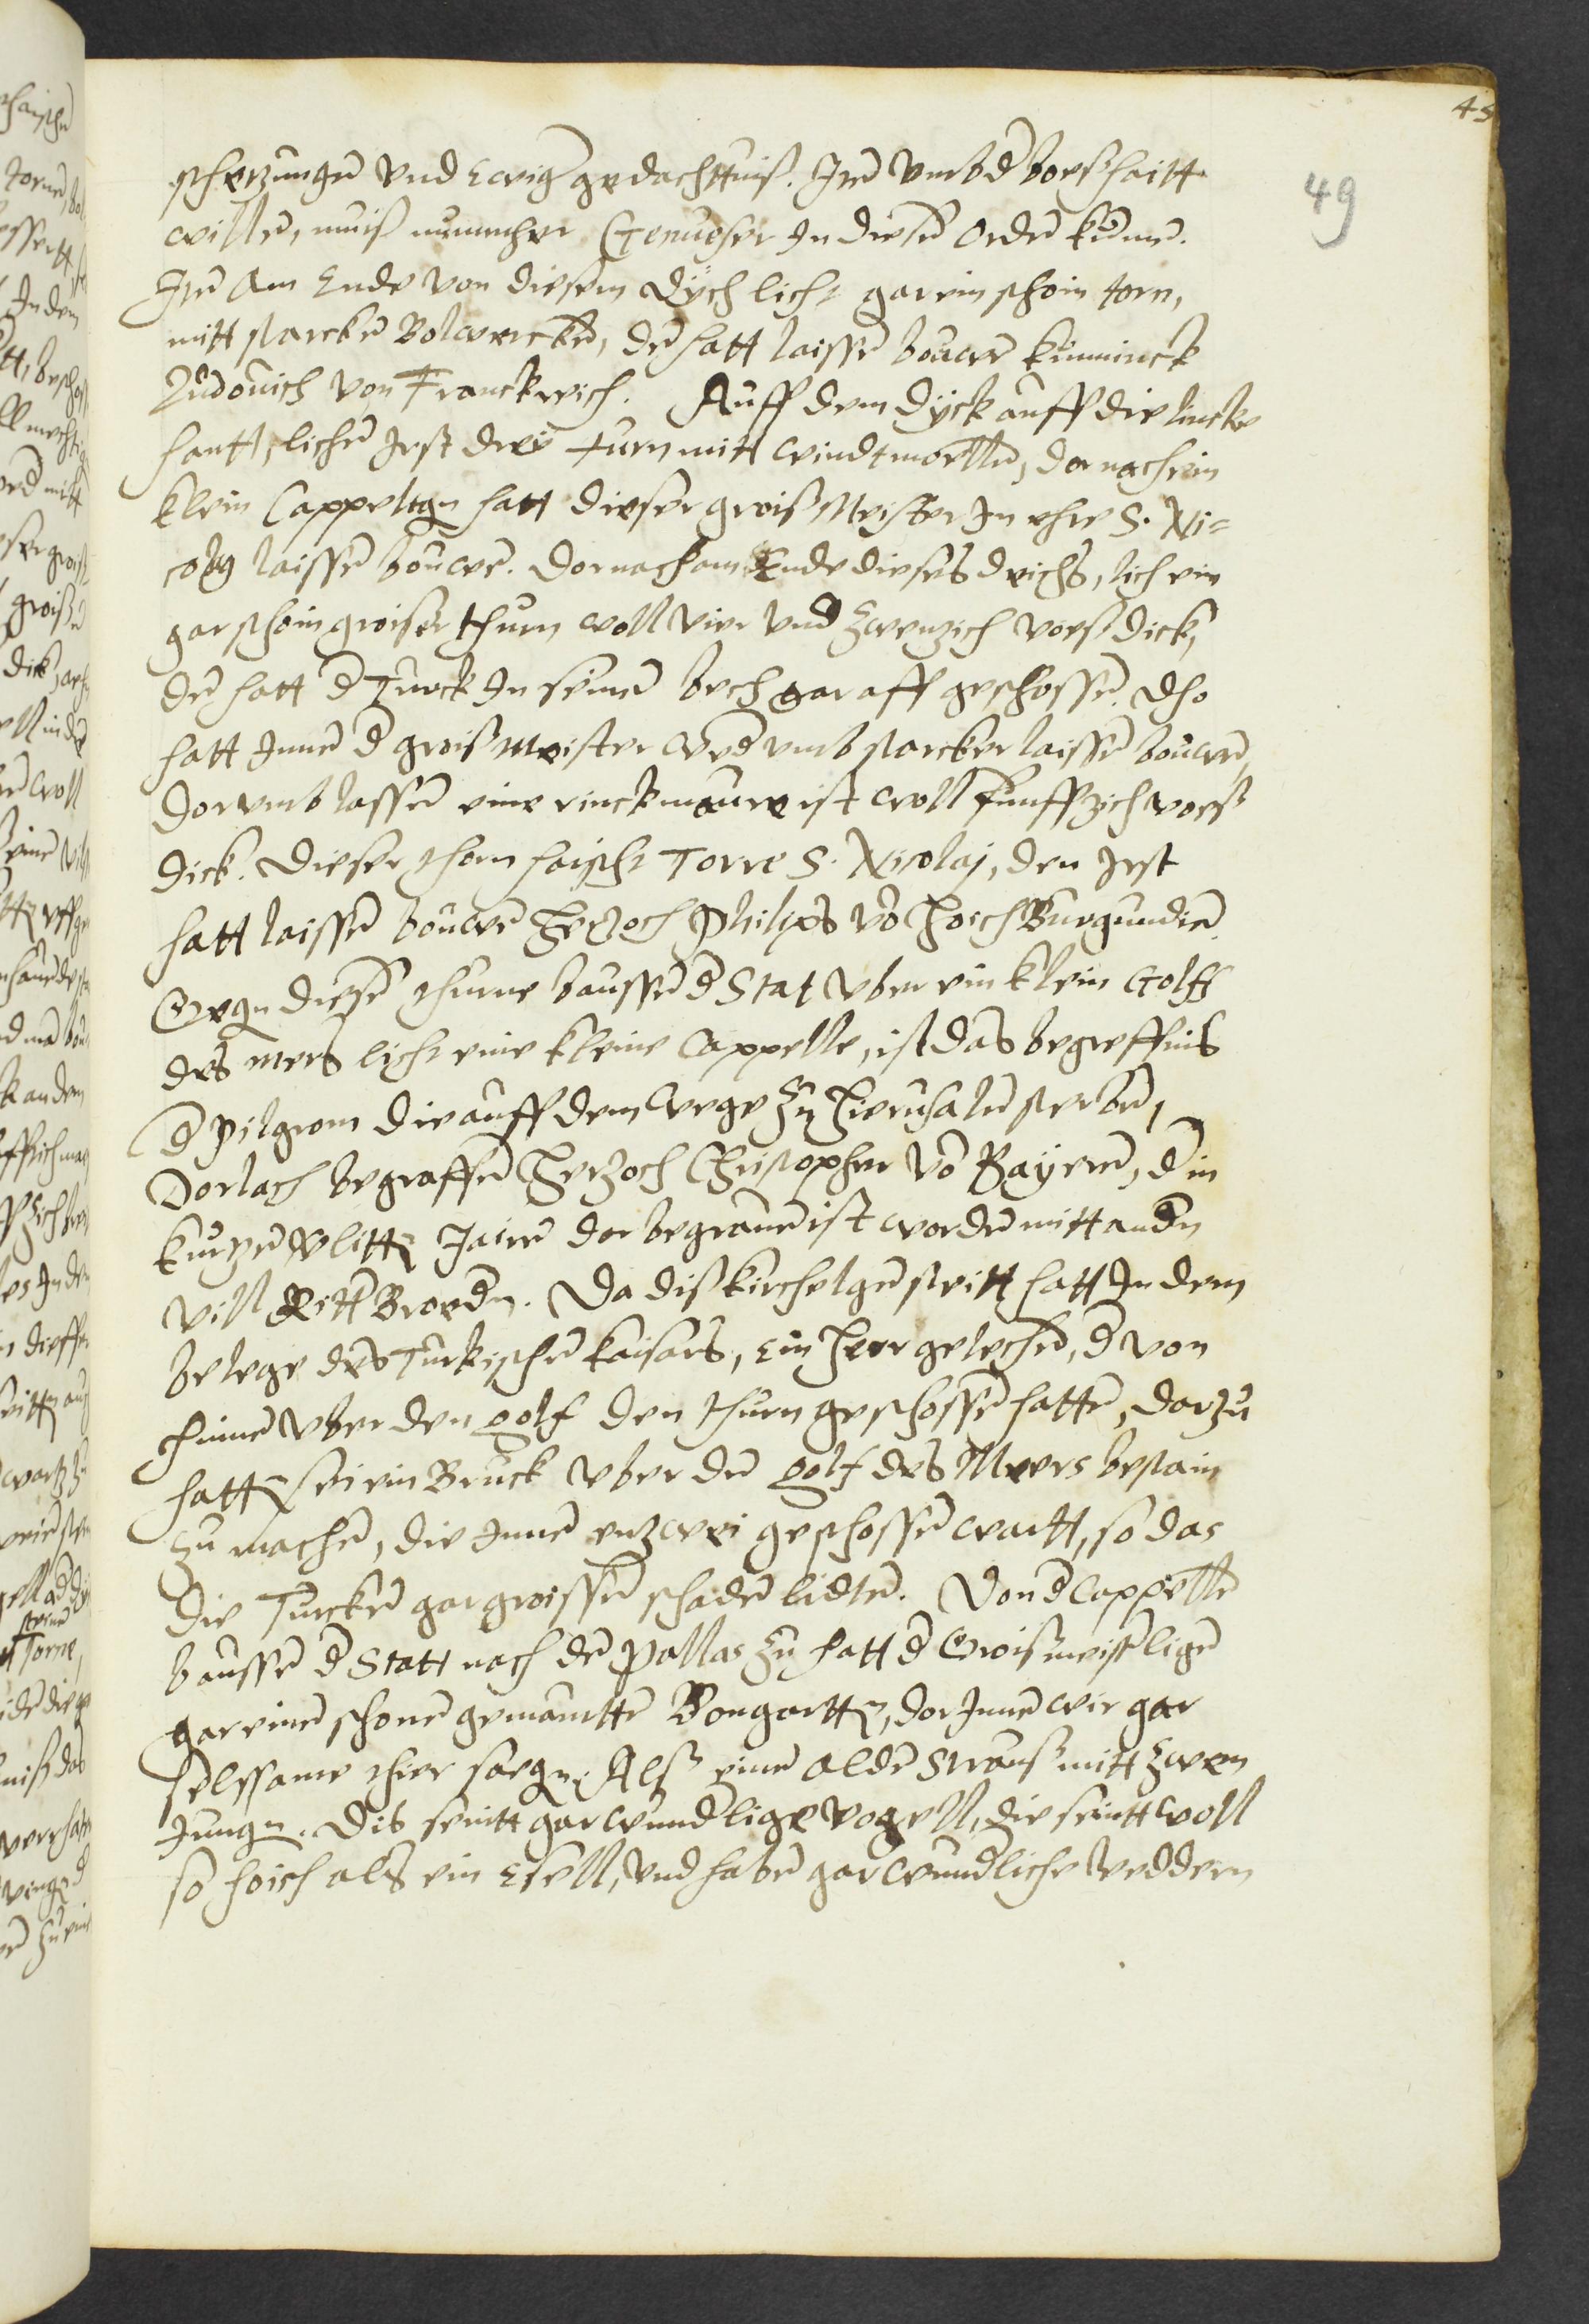 45
49
schetzungen vnd ewig gedachttnis. Item vmb d boeshaitt
willen, muis nummher Genueser In diesen Orden kumen.
Item Am Ende von diesem dÿch licht gar ein schoin torn,
mitt starcken Bolwercken, den hatt laissen bouwen kunninck
Ludouich von Franckrich. Auff dem dÿck auff die lincke
hantt, lichen Irst drei turn mitt windtmoellen, dornach ein
klein Cappeltgn hatt dieser grois Meister In ehre S. Ni=
colay laissen bouwen. Dornach am Ende dieses dichs, lich ein
gar schoin groiser thurn woll vier vnd zwenzich voes dick,
den hatt d Turck In seinen bech gar aff geschossen. Also
hatt Innen d grois Meister wed vmb starcker laissen bouwen,
dorvmb lassen eine rinckmaure ist woll funffzich voess
dick. Dieser thorn haischt Torre S. Nicolaj, den Irst
hatt laissen bouwen Hertzoch Philips vo Hoich Burgundien.
Gegn diesen thurne baussen d Stat vber ein klein Golff
des mers licht eine kleine Cappelle, ist das begreffnis
d Pilgrom die auff dem wege zu Hierusalem sterben,
Dorlach begraffen Hertzoch Christopher vo Bayeren, d in
kurtzen vlittz Jaren dor begrauen ist worden mitt andn
vill Ritt Broedn. Da dis kirchelgen steitt hatt In dem
belege des Turkischen kaisars, ein Heer gelechen, d von
hinnen vber den golf den thurn geschossen hatte, dorzu
hattz sei ein Bruck vber den golf des Meers bestain
zu machen, die Innen entzwei geschossen wartt, so das
die Turcken gar groissen schaden lidten. Von d Cappelle
baussen d Statt nach den Pallas zu hatt d Groismeist ligen
gar einen schonen gemaurtten Bongarttz, dor Innen wir gar
selssame thier saegn. Alss einen alden Straus mitt zwen
Jungn. Dis seintt gar wundlige vogell, die seintt woll
so hoich als ein Esell, vnd haben gar wundliche veddern